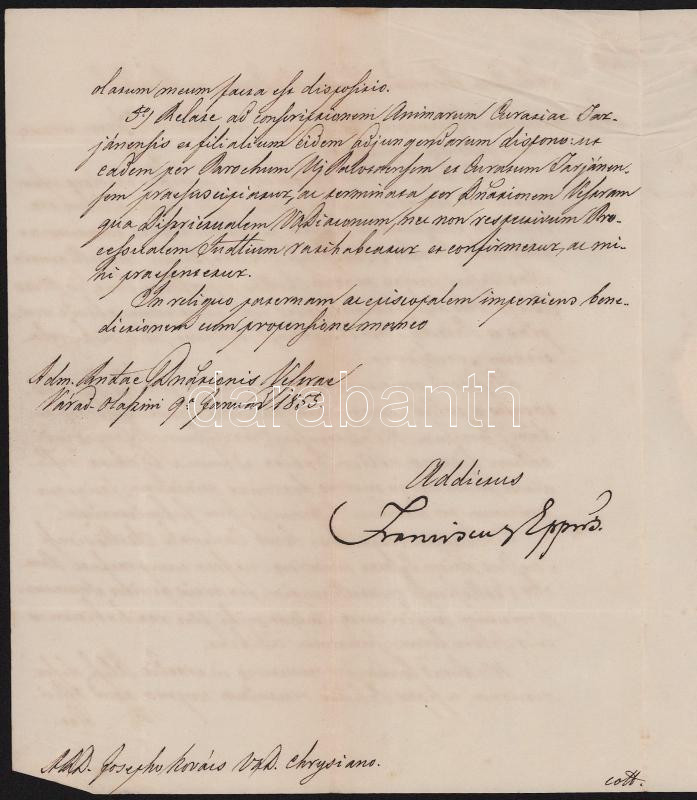 olatum meum facta est dispositio.
5o/ Relate ad conscriptionem Animarum Curatiae Tar-
jánensis et filialium eidem adjungendarum dispono: ut
eadem per Parochum Uj Palotensem et Curatum Tarjánen-
sem praesuscipiatur, ac terminata per Dnaōnem Vestram
qua Districtualem VADiaconum, nec non respectivum Pro-
cessualem Judlium ratihabeatur et confirmetur, ac mi-
hi praesentetur.
In reliquo paternam ac episcopalem impertiens bene-
dictionem cum propensione maneo
Adm. Rndae Dnationis Vestrae
Várad-Olaszini 9a Januar 1855.
darabanth
Addictus
Franciscus Eppus.
ARD. Josepho Kovács VAD. Chrysiano.
cott.